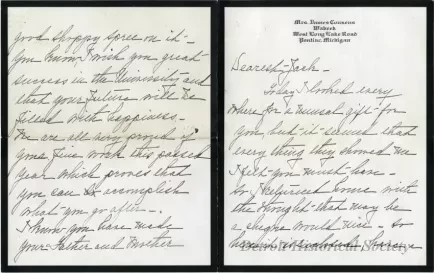 Mrs. James Couzens
Wabeek
West Long Lake Road
Pontiac, Michigan
Dearest Jack -
Today I looked every
where for a unusal gift for
you, but it seemed that
every thing they showed me
I felt you must have -
So I returned home with
the thought that may be
a cheque would nice - So
have
Detroit Historical Society
good shoppy spree on it -
You know I wish you great
success in the University and
that your future will be
filled with happiness -
We are all very proud of
your fine work this passed
year which proves that
you can accomplish
what you go after -
I know you have made
your Father and Mother